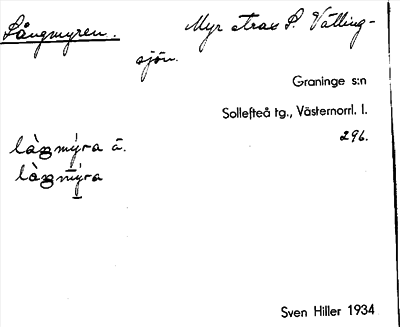 Långmyren. Myr strax S. Vätling-
sjön.
Graninge s:n
Sollefteå tg., Västernorrl. l.
296.
làŋmýra ā.
làŋmýra
Sven Hiller 1934